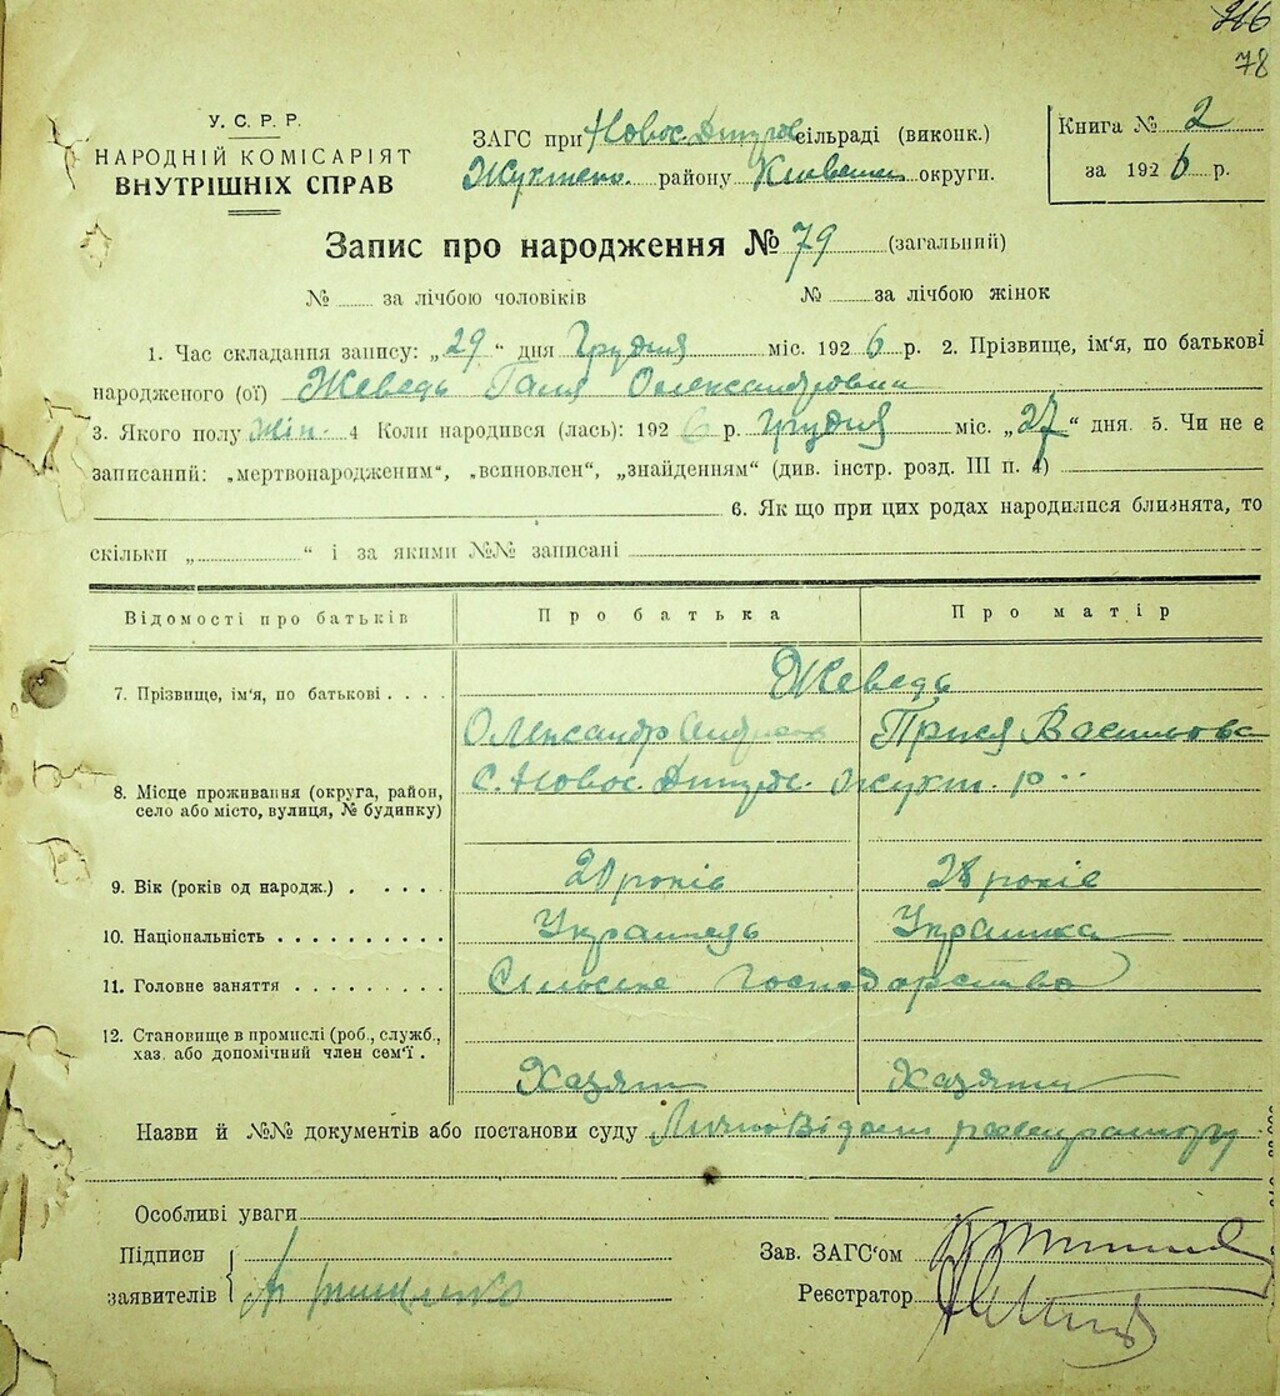 78
У. С. Р. Р.
НАРОДНІЙ КОМІСАРІЯТ
ВНУТРІШНІХ СПРАВ
ЗАГС при Новос. сільраді (виконк.)
району округи.
Книга № 2
за 1926 р.
Запис про народження № 79 (загальний)
№ за лічбою чоловіків № за лічбою жінок
1. Час складання запису: „29“ дня Грудня міс. 1926 р. 2. Прізвище, ім'я, по батькові
народженого (ої) Жеведь Галя Олександровна
3. Якого полу жін. 4 Коли народився (лась): 1926 р. грудня міс. „27“ дня. 5. Чи не є
записаний: „мертвонародженим“, „всиновлен“, „знайденням“ (див. інстр. розд. III п. 4)
6. Як що при цих родах народилися близнята, то
скільки „ “ і за якими №№ записані
Відомості про батьків Про батька Про матір
7. Прізвище, ім'я, по батькові . . . . Жеведь
Олександр Прися Васильовна
8. Місце проживання (округа, район,
село або місто, вулиця, № будинку)
с. Новос. р
9. Вік (років од народж.) . . . . 20 років 28 років
10. Національність . . . . . . . . . . Українець Українка
11. Головне заняття . . . . . . . . . Сільське господарство
12. Становище в промислі (роб., служб.,
хаз. або допомічний член сем'ї .
Хазяїн Хазяйка
Назви й №№ документів або постанови суду Лично відомі реєстратору
Особливі уваги
Підписи
заявителів
Зав. ЗАГС'ом
Реєстратор